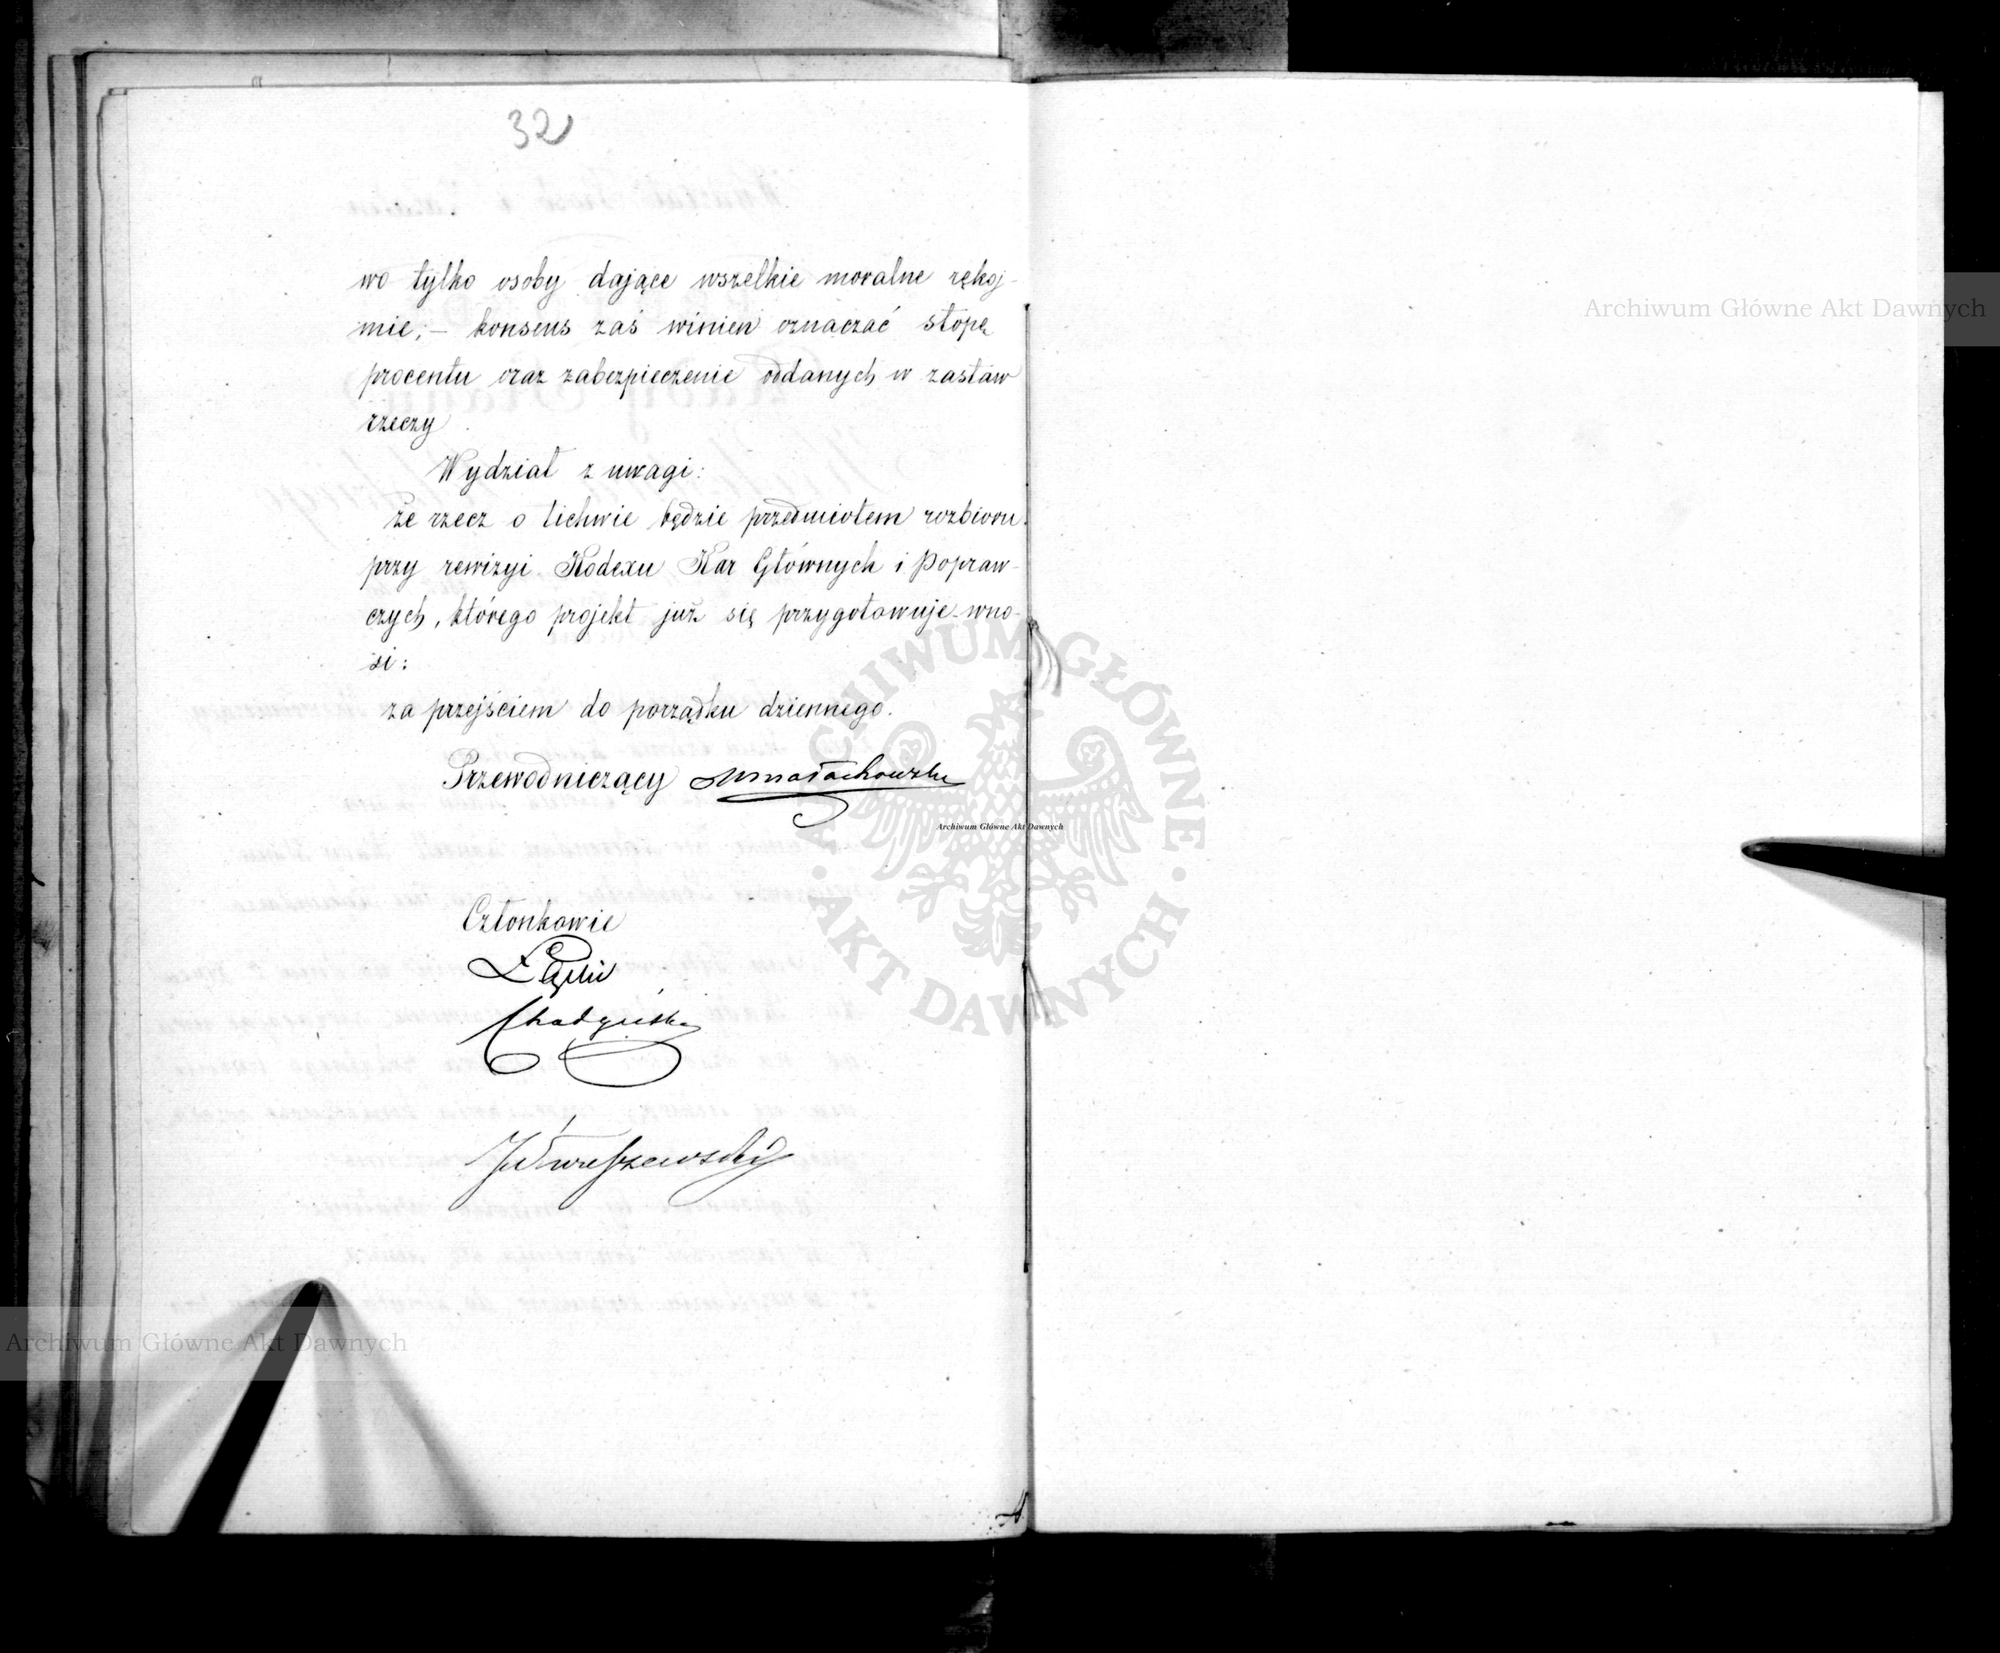 32
wo tylko osoby dające wszelkie moralne rękoj-
mie; — konsens zaś winien oznaczać stopę
procentu oraz zabezpieczenie oddanych w zastaw
rzeczy.
Wydział z uwagi:
że rzecz o lichwie będzie przedmiotem rozbioru
przy rewizyi Kodexu Kar Głównych i Popraw-
czych, którego projekt już się przygotowuje - wno-
si:
za przejściem do porządku dziennego.
Przewodniczący Małachowski
Członkowie
Archiwum Główne Akt Dawnych
ARCHIWUM GŁÓWNE · AKT DAWNYCH ·
Archiwum Główne Akt Dawnych
Archiwum Główne Akt Dawnych